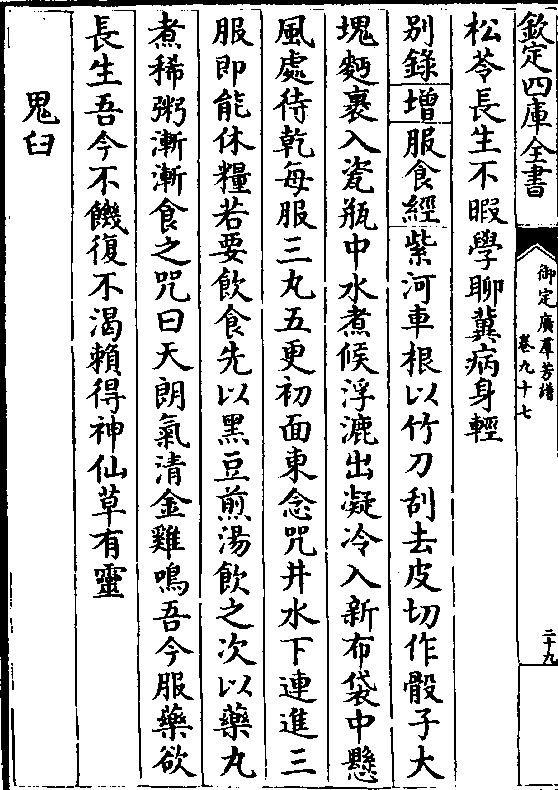 欽定四庫全書
御定廣羣芳譜
卷九十七
二十九
松苓長生不暇學聊冀病身輕
別錄增服食經紫河車根以竹刀刮去皮切作骰子大
塊麪裹入瓷瓶中水煮候浮漉出凝冷入新布袋中懸
風處待乾每服三丸五更初面東念咒井水下連進三
服即能休糧若要飲食先以黑豆煎湯飲之次以藥丸
煮稀粥漸漸食之咒曰天朗氣清金雞鳴吾今服藥欲
長生吾今不饑復不渴賴得神仙草有靈
鬼臼